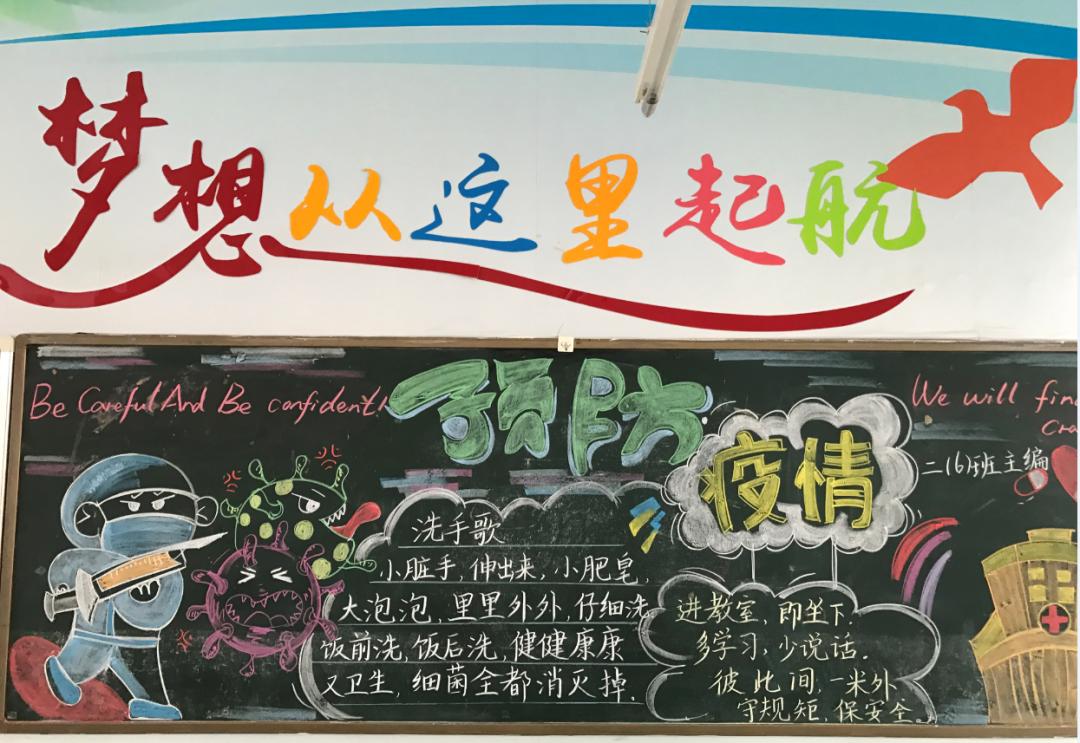 梦想从这里起航
Be Careful And Be confident!
预防
疫情
We will fin
二(6)班主编
洗手歌
小脏手,伸出来,小肥皂,
大泡泡,里里外外,仔细洗
饭前洗,饭后洗,健健康康
又卫生,细菌全都消灭掉.
进教室,即坐下.
多学习,少说话.
彼此间,一米外
守规矩,保安全。